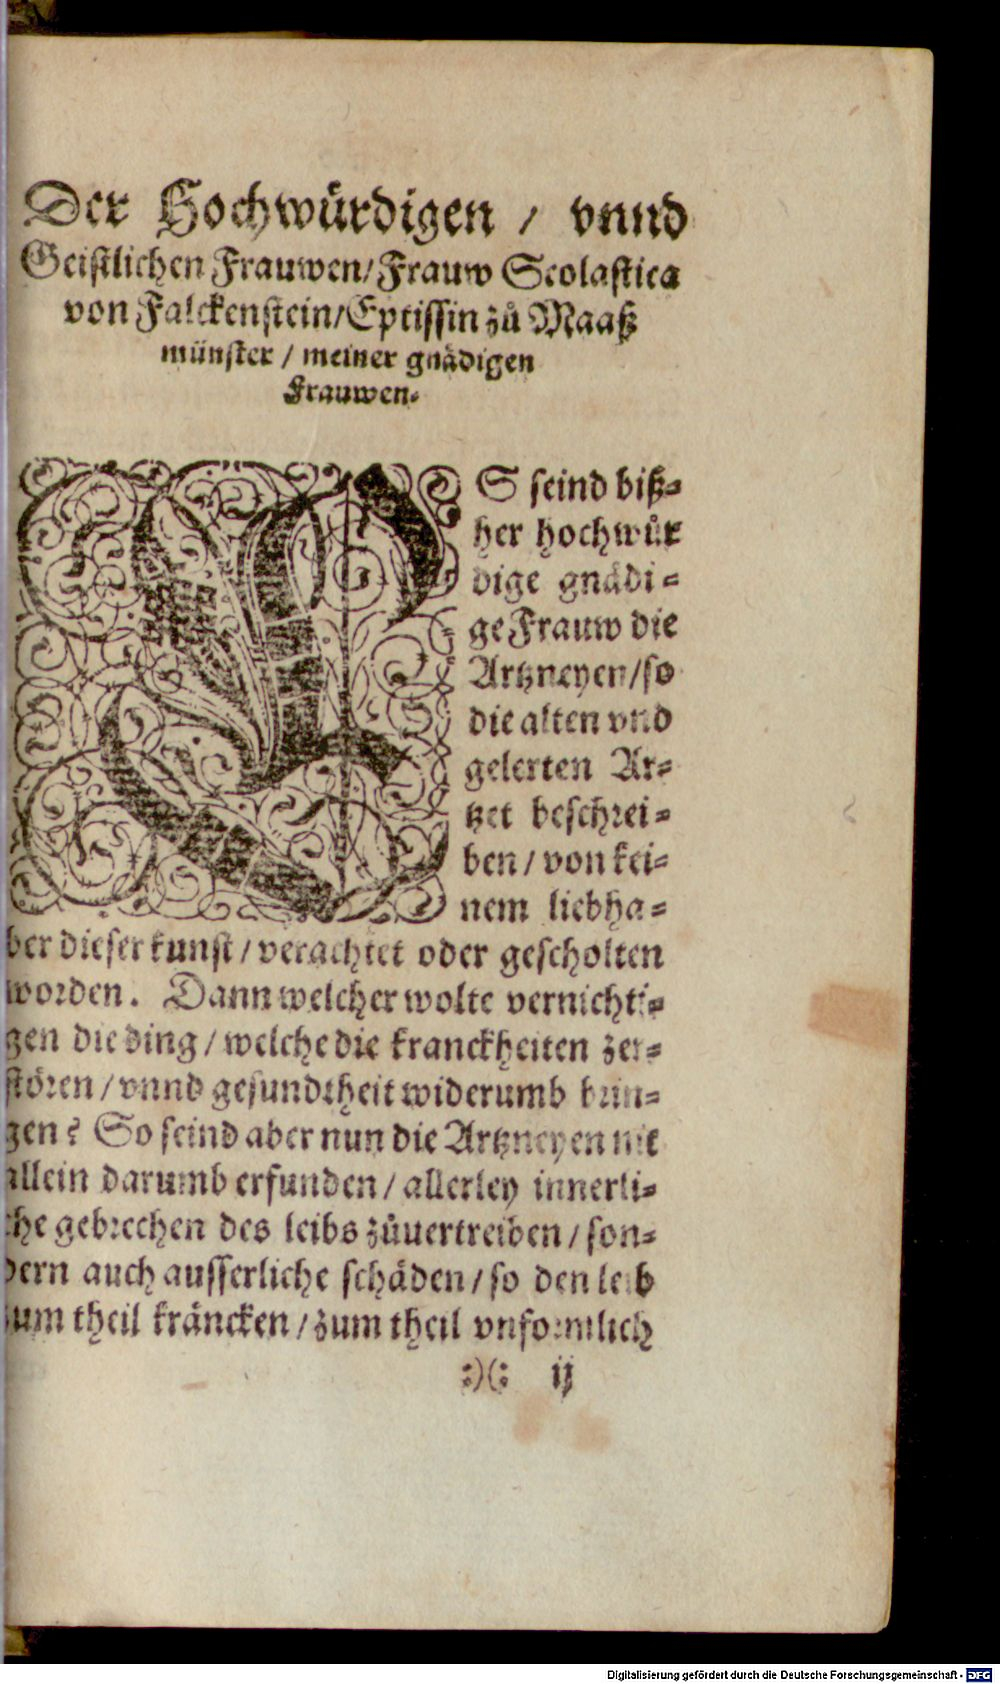 Der Hochwürdigen / vnnd
Geistlichen Frauwen/Frauw Scolastica
von Falckenstein/Eptissin zů Maaß
münster / meiner gnädigen
Frauwen.
ES seind biß-
her hochwür
dige gnädi-
ge Frauw die
Artzneyen/so
die alten vnd
gelerten Ar-
tzet beschrei-
ben / von kei-
nem liebha-
ber dieser kunst / verachtet oder gescholten
worden. Dann welcher wolte vernichti-
gen die ding / welche die kranckheiten zer-
stören / vnnd gesundtheit widerumb brin-
gen? So seind aber nun die Artzneyen nit
allein darumb erfunden / allerley innerli-
che gebrechen des leibs zůuertreiben / son-
dern auch ausserliche schäden / so den leib
zum theil kräncken / zum theil vnformlich
:)(: ij
Digitalisierung gefördert durch die Deutsche Forschungsgemeinschaft - DFG